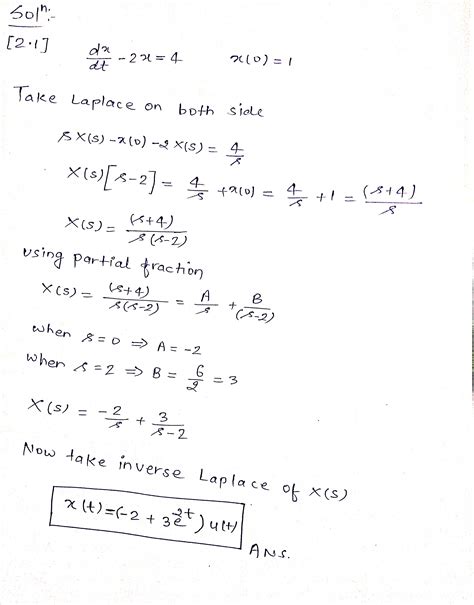 Solⁿ:-
[2.1] dx/dt - 2x = 4 x(0) = 1
Take Laplace on both side
sX(s) - x(0) - 2X(s) = 4/s
X(s)[s-2] = 4/s + x(0) = 4/s + 1 = (s+4)/s
X(s) = (s+4)/s(s-2)
using partial fraction
X(s) = (s+4)/s(s-2) = A/s + B/(s-2)
when s=0 ⇒ A = -2
when s=2 ⇒ B = 6/2 = 3
X(s) = -2/s + 3/s-2
Now take inverse Laplace of X(s)
x(t) = (-2 + 3e^2t) u(t)
ANS.